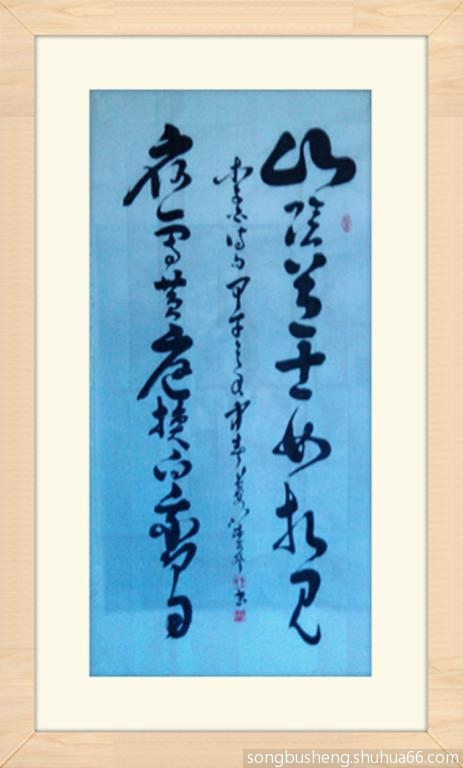 山陰道士如相見
應寫黃庭換白鵝
李白诗句甲午之
songbusheng.shuhua66.com